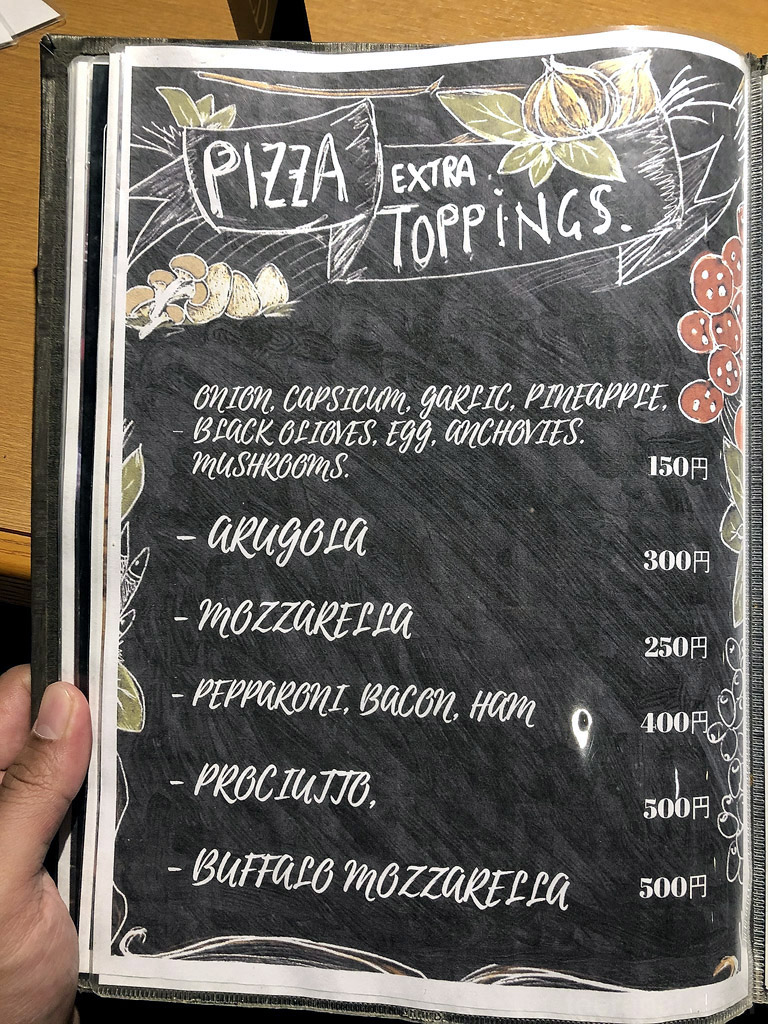 PIZZA
EXTRA
TOPPINGS.
ONION, CAPSICUM, GARLIC, PINEAPPLE,
- BLACK OLIOVES, EGG, ANCHOVIES.
MUSHROOMS. 150円
- ARUGOLA 300円
- MOZZARELLA 250円
- PEPPARONI, BACON, HAM 400円
- PROCIUTTO, 500円
- BUFFALO MOZZARELLA 500円